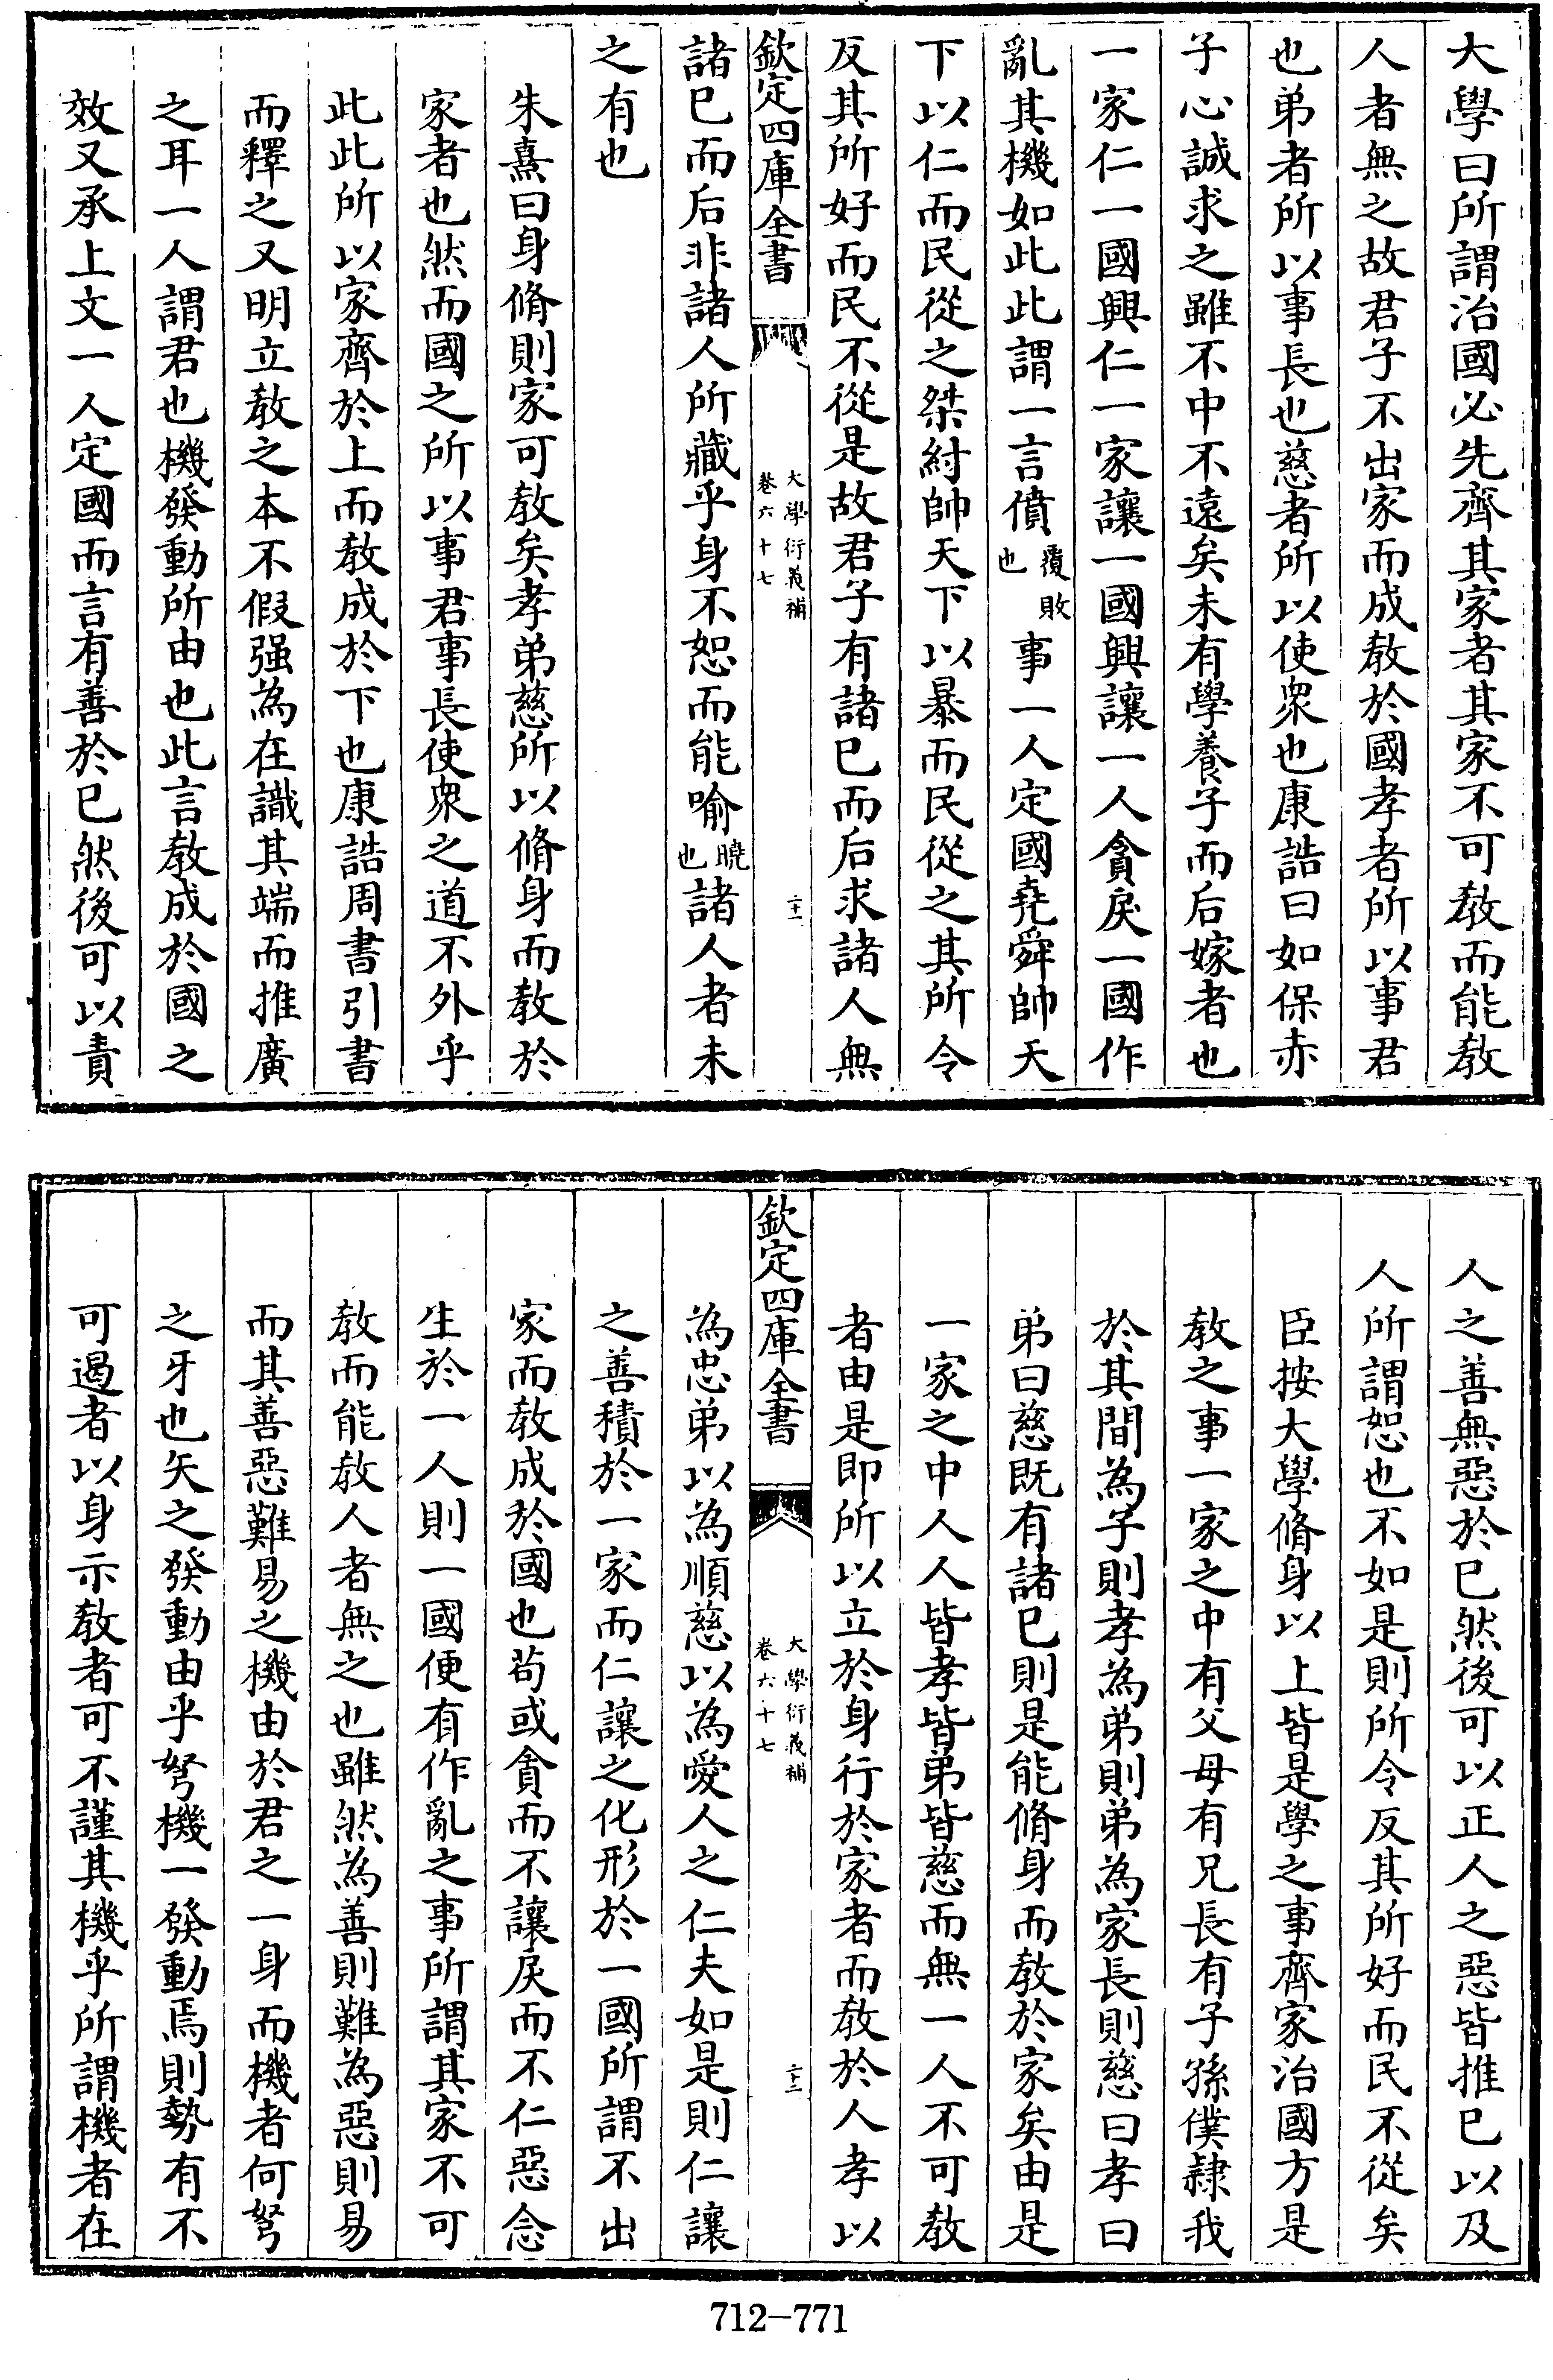 大學曰所謂治國必先齊其家者其家不可教而能教
人者無之故君子不出家而成教於國孝者所以事君
也弟者所以事長也慈者所以使衆也康誥曰如保赤
子心誠求之雖不中不遠矣未有學養子而后嫁者也
一家仁一國興仁一家讓一國興讓一人貪戾一國作
亂其機如此此謂一言僨覆敗也事一人定國堯舜帥天
下以仁而民從之桀紂帥天下以暴而民從之其所令
反其所好而民不從是故君子有諸已而后求諸人無
欽定四庫全書 大學衍義補 卷六十七 二十一
諸已而后非諸人所藏乎身不恕而能喻曉也諸人者未
之有也
朱熹曰身脩則家可教矣孝弟慈所以脩身而教於
家者也然而國之所以事君事長使衆之道不外乎
此此所以家齊於上而教成於下也康誥周書引書
而釋之又明立教之本不假强為在識其端而推廣
之耳一人謂君也機發動所由也此言教成於國之
效又承上文一人定國而言有善於已然後可以責
人之善無惡於已然後可以正人之惡皆推已以及
人所謂恕也不如是則所令反其所好而民不從矣
臣按大學脩身以上皆是學之事齊家治國方是
教之事一家之中有父母有兄長有子孫僕隷我
於其間為子則孝為弟則弟為家長則慈曰孝曰
弟曰慈既有諸已則是能脩身而教於家矣由是
一家之中人人皆孝皆弟皆慈而無一人不可教
者由是即所以立於身行於家者而教於人孝以
欽定四庫全書 大學衍義補 卷六十七 二十二
為忠弟以為順慈以為愛人之仁夫如是則仁讓
之善積於一家而仁讓之化形於一國所謂不出
家而教成於國也苟或貪而不讓戾而不仁惡念
生於一人則一國便有作亂之事所謂其家不可
教而能教人者無之也雖然為善則難為惡則易
而其善惡難易之機由於君之一身而機者何弩
之牙也矢之發動由乎弩機一發動焉則勢有不
可遏者以身示教者可不謹其機乎所謂機者在
712-771